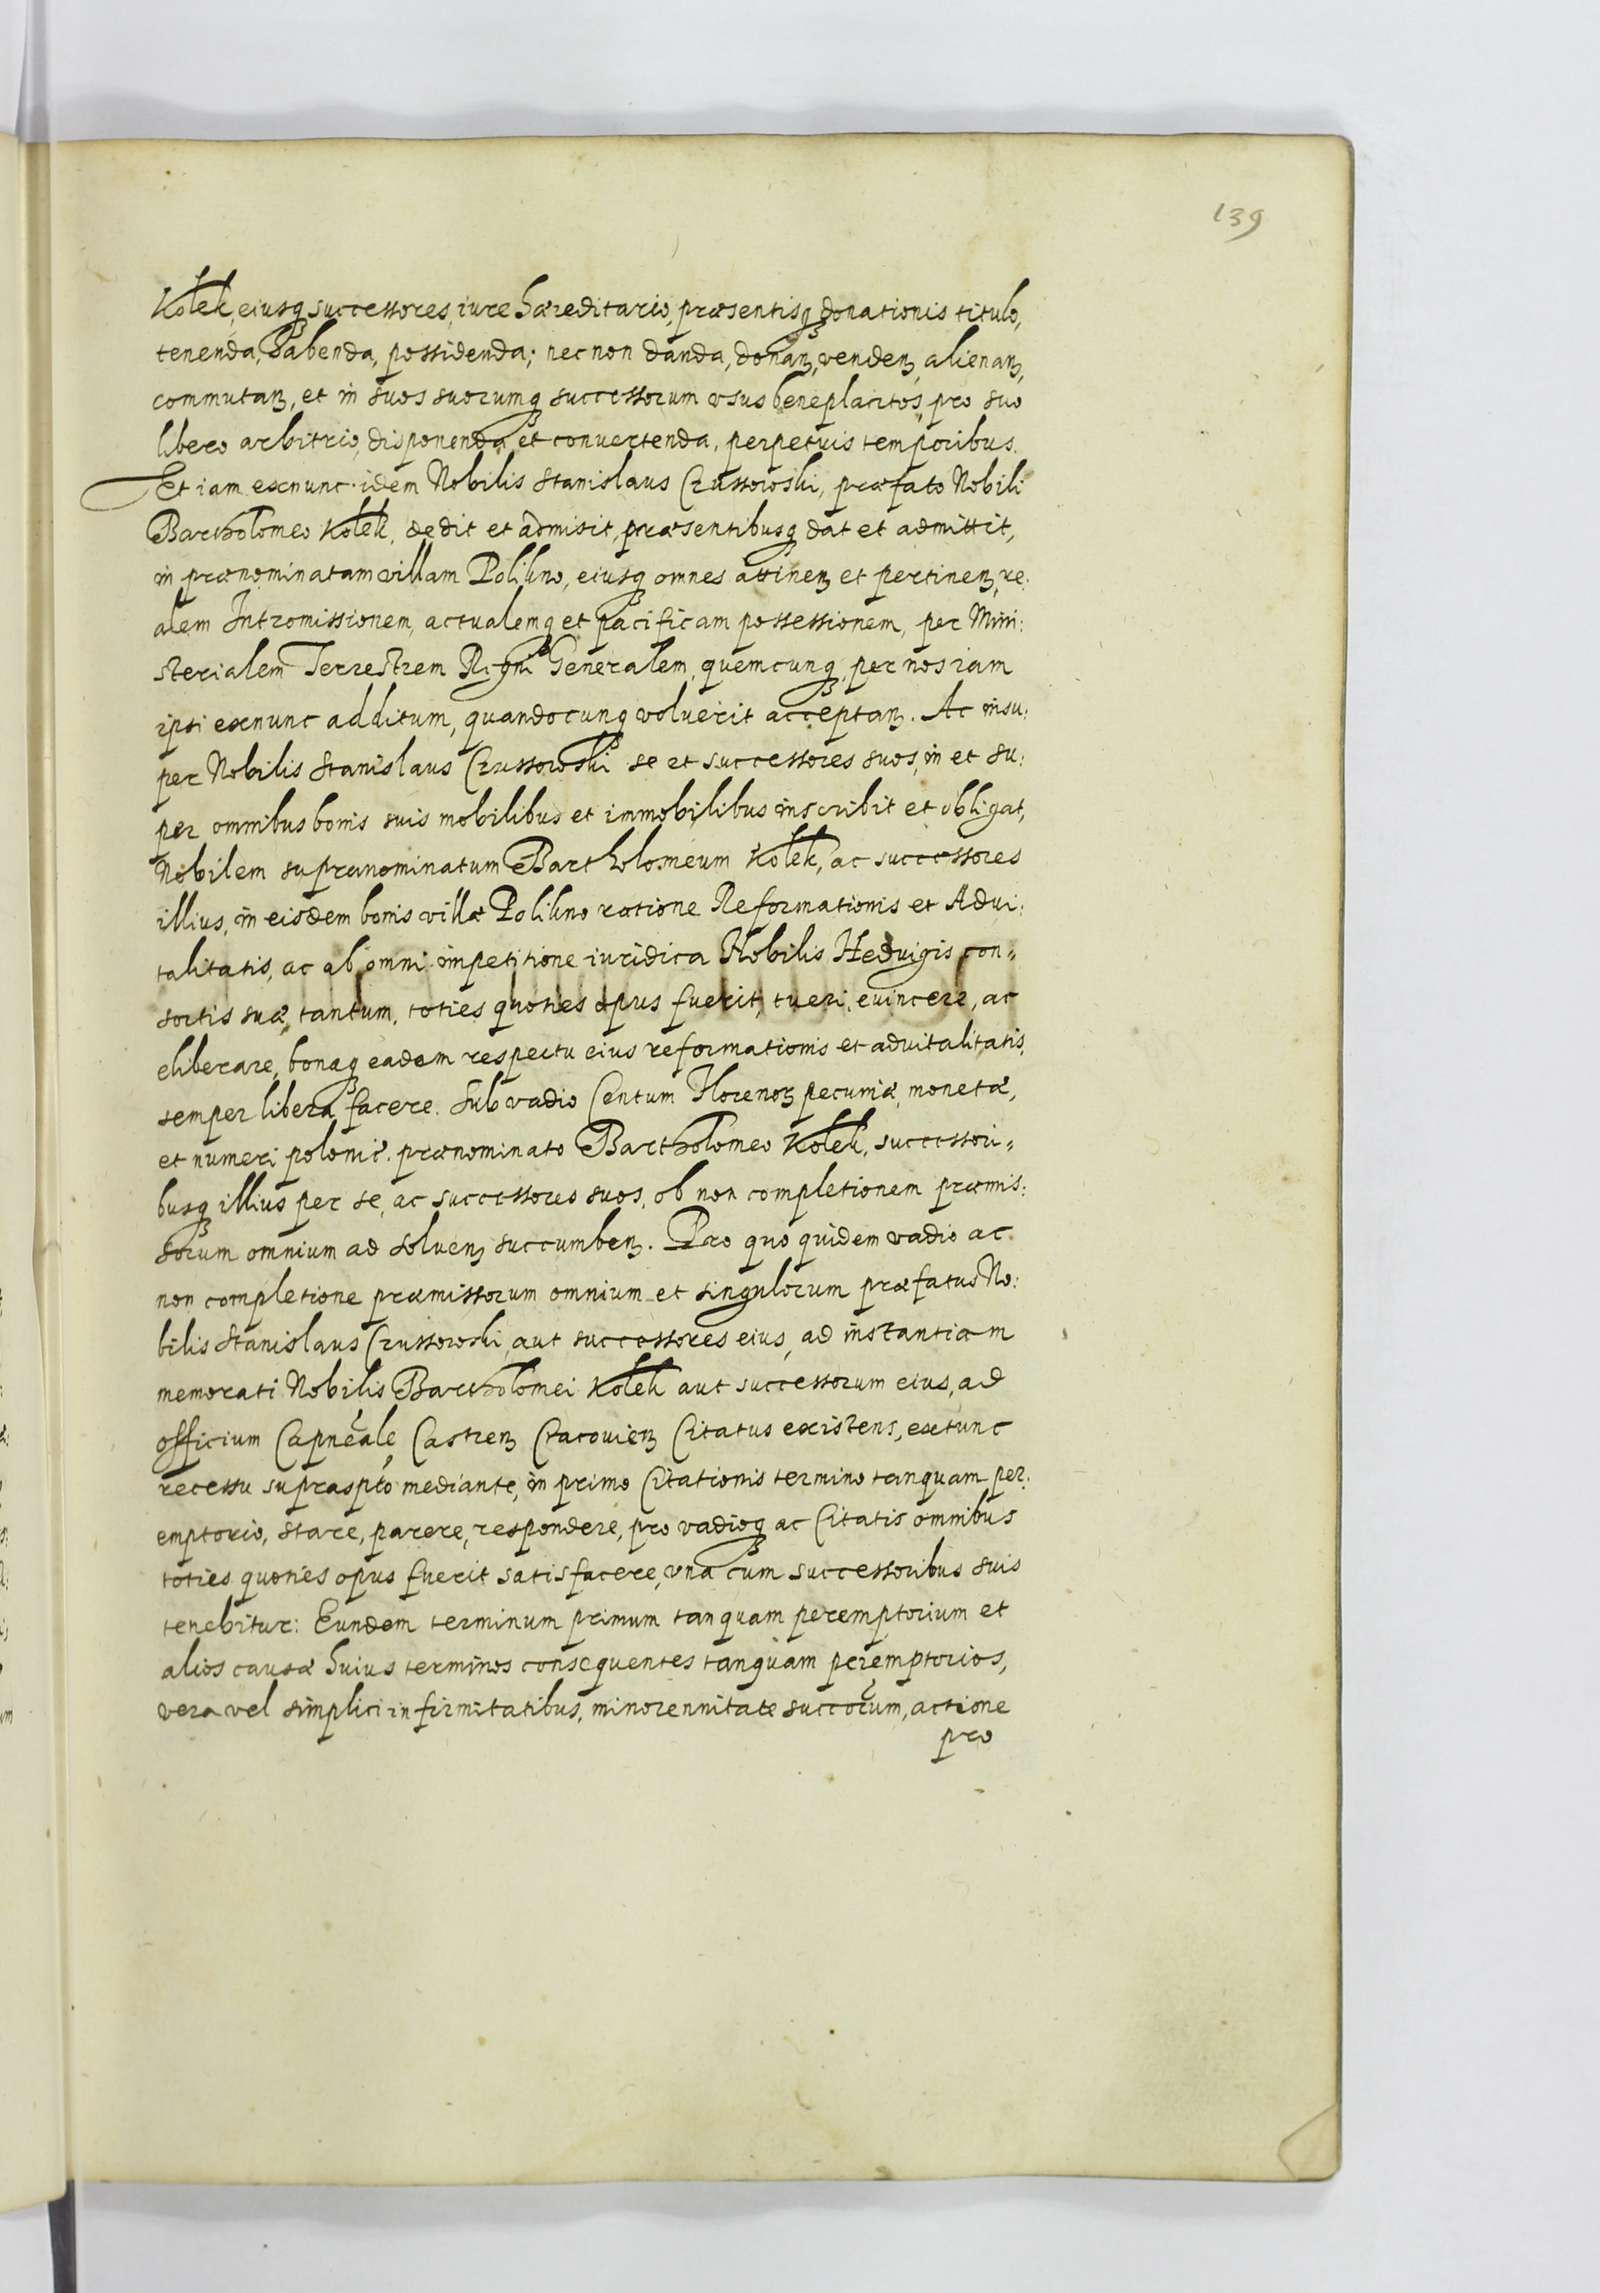 139
Kołek, eiusq₃ successores, iure hæreditario, præsentisq₃ donationis titulo,
tenenda, habenda, possidenda; nec non danda, donan₃, venden₃, alienan₃,
commutan₃, et in suos suorumq₃ successorum vsus beneplacitos, pro suo
libero arbitrio, disponenda et conuertenda, perpetuis temporibus.
Et iam exnunc idem Nobilis Stanislaus Crussowski, præfato Nobili
Bartholomeo Kołek, dedit et admisit, præsentibusq₃ dat et admittit,
in prænominatam villam Polikno, eiusq₃ omnes attinen₃ et pertinen₃, re:
alem Intromissionem, actualemq₃ et pacificam possessionem, per Mini:
sterialem Terrestrem Regni Generalem, quemcunq₃, per nos iam
ipsi exnunc additum, quandocunq₃ voluerit acceptan₃. Ac insu:
per Nobilis Stanislaus Crussowski se et successores suos, in et su:
per omnibus bonis suis mobilibus et immobilibus inscribit et obligat,
Nobilem supranominatum Bartholomeum Kołek, ac successores
illius, in eisdem bonis villæ Polikno ratione Reformationis et Advi:
talitatis, ac ab omni impetitione iuridica Nobilis Hedvigis con„
sortis suæ, tantum, toties quoties opus fuerit, tueri, euincere, ac
eliberare, bonaq₃ eadem respectu eius reformationis et advitalitatis,
semper libera facere. Sub vadio Centum Florenor₃ pecuniæ, monetæ,
et numeri polonic̃. prænominato Bartholomeo Kołek, successori„
busq₃ illius per se, ac successores suos, ob non completionem præmis:
sorum omnium ad soluen₃ succumben₃. Pro quo quidem vadio ac
non completione præmissorum omnium et singulorum præfatus No:
bilis Stanislaus Crussowski, aut successores eius, ad instantiam
memorati Nobilis Bartholomei Kołek aut successorum eius, ad
officium Capneale, Castren₃ Cracouien₃ Citatus existens, extunc
recessu suprasp̃to mediante, in primo Citationis termino tanquam per:
emptorio, stare, parere, respondere, pro vadioq₃ ac Citatis omnibus
toties quoties opus fuerit satisfacere, vna cum successoribus suis
tenebitur: Eundem terminum primum tanquam peremptorium et
alios causæ huius terminos consequentes tanquam peremptorios,
vera vel simplici infirmitatibus, minorennitate succorum, actione
pro